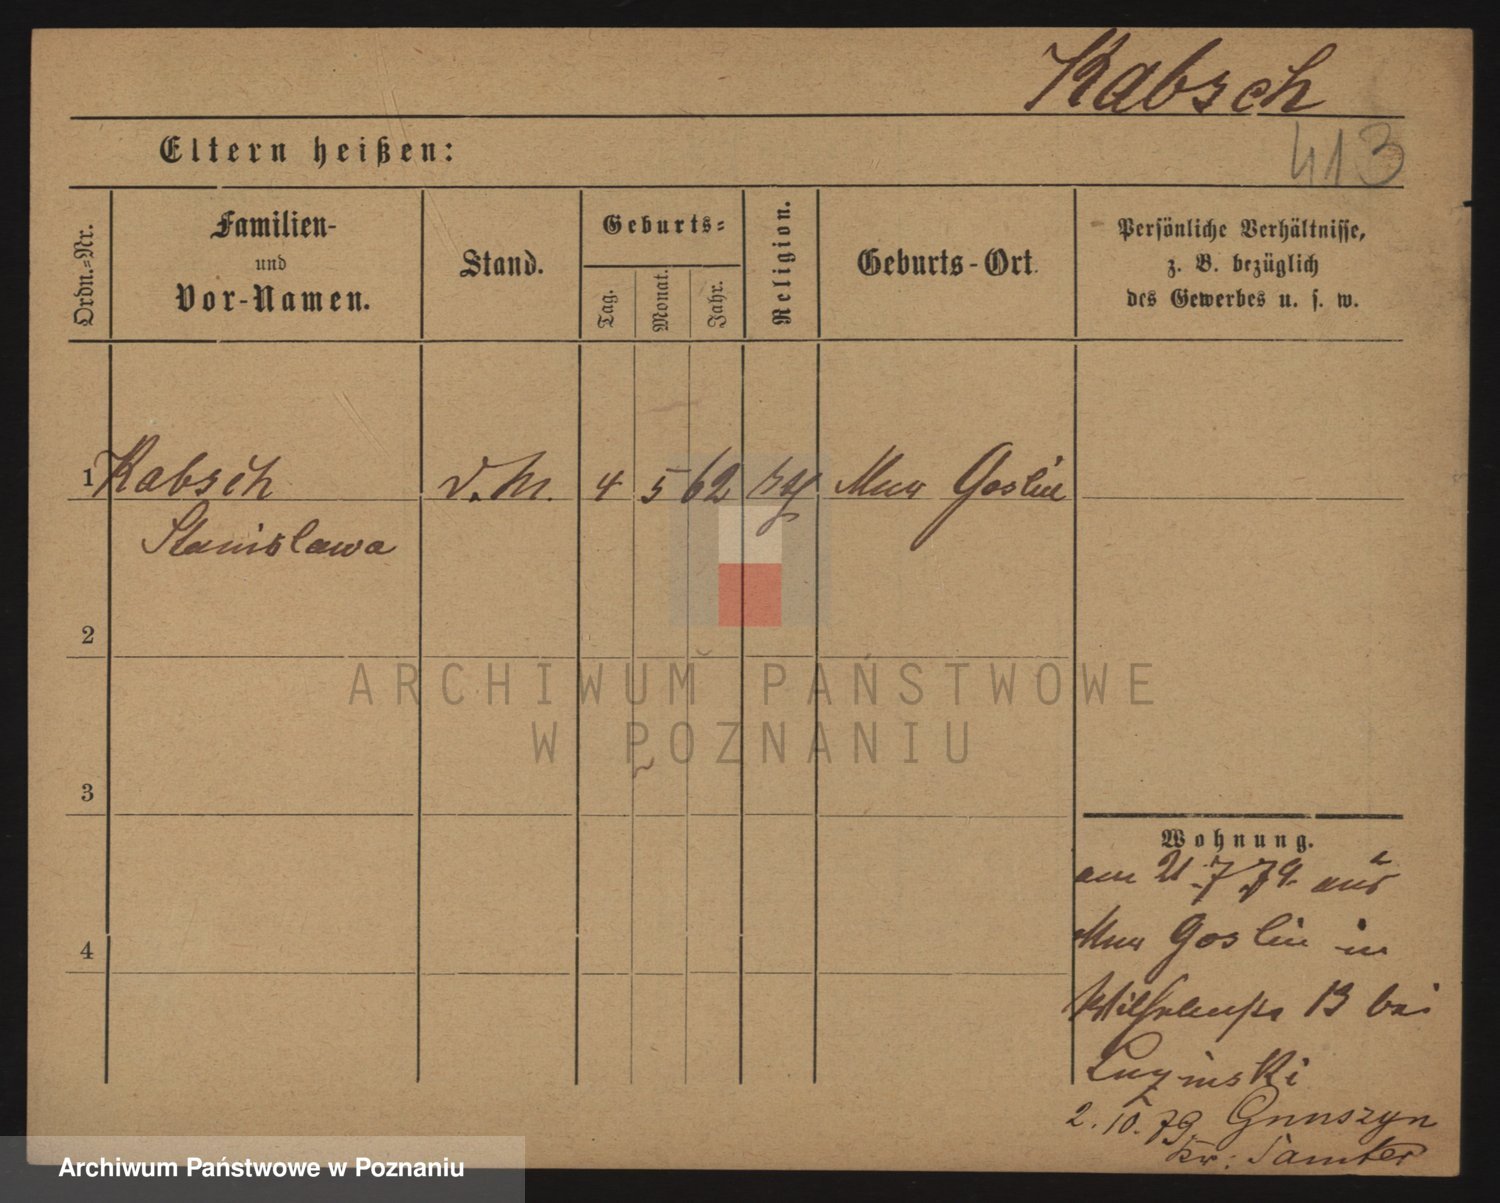 Kabsch
413
Eltern heißen:
Ordn.-Nr.
Familien-
und
Vor-Namen.
Stand.
Geburts-
Tag.
Monat.
Jahr.
Religion.
Geburts-Ort.
Persönliche Verhältnisse,
z. B. bezüglich
des Gewerbes u. s. w.
1 Kabsch D. M. 4 5 62 Mur Goslin
Stanislawa
2
3
4
Wohnung.
am 21. 7. 79. aus
Mur Goslin in
Wilhelmstr 13 bei
2. 10. 79.
Kr: Samter
ARCHIWUM PAŃSTWOWE
W POZNANIU
Archiwum Państwowe w Poznaniu